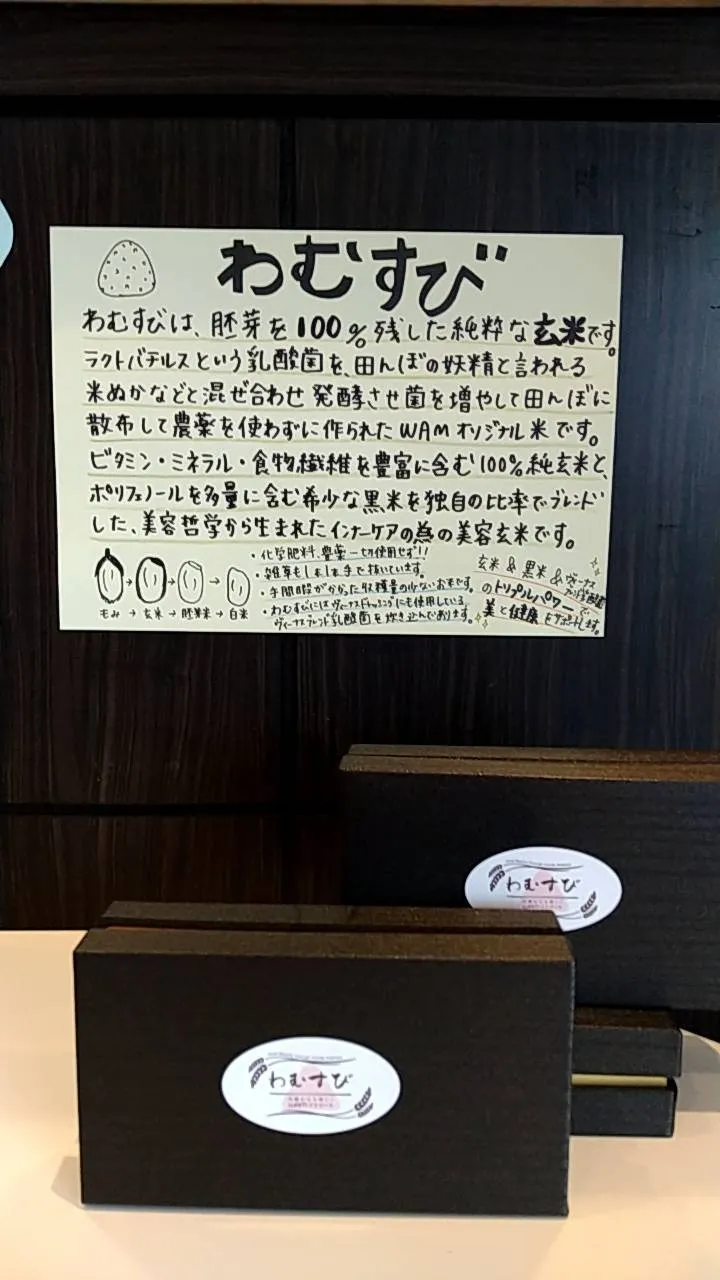 わむすび
わむすびは、胚芽を100%残した純粋な玄米です。
ラクトバチルスという乳酸菌を、田んぼの妖精と言われる
米ぬかなどと混ぜ合わせ発酵させ菌を増やして田んぼに
散布して農薬を使わずに作られたWAMオリジナル米です。
ビタミン・ミネラル・食物繊維を豊富に含む100%純玄米と、
ポリフェノールを多量に含む希少な黒米を独自の比率でブレンド
した、美容哲学から生まれたインナーケアの為の美容玄米です。
もみ→玄米→胚芽米→白米
・化学肥料、農薬一切使用せず!!
・雑草もしょしょ手で抜いています。
・手間暇がかかった収穫量の少ないお米です。
・わむすびにはヴィーナスドレッシングにも使用している
ヴィーナスブレンド乳酸菌を炊き込んであります。
玄米&黒米&ヴィーナス
ブレンド乳酸菌
のトリプルパワーで
美と健康をサポートします。
わむすび
わむすび